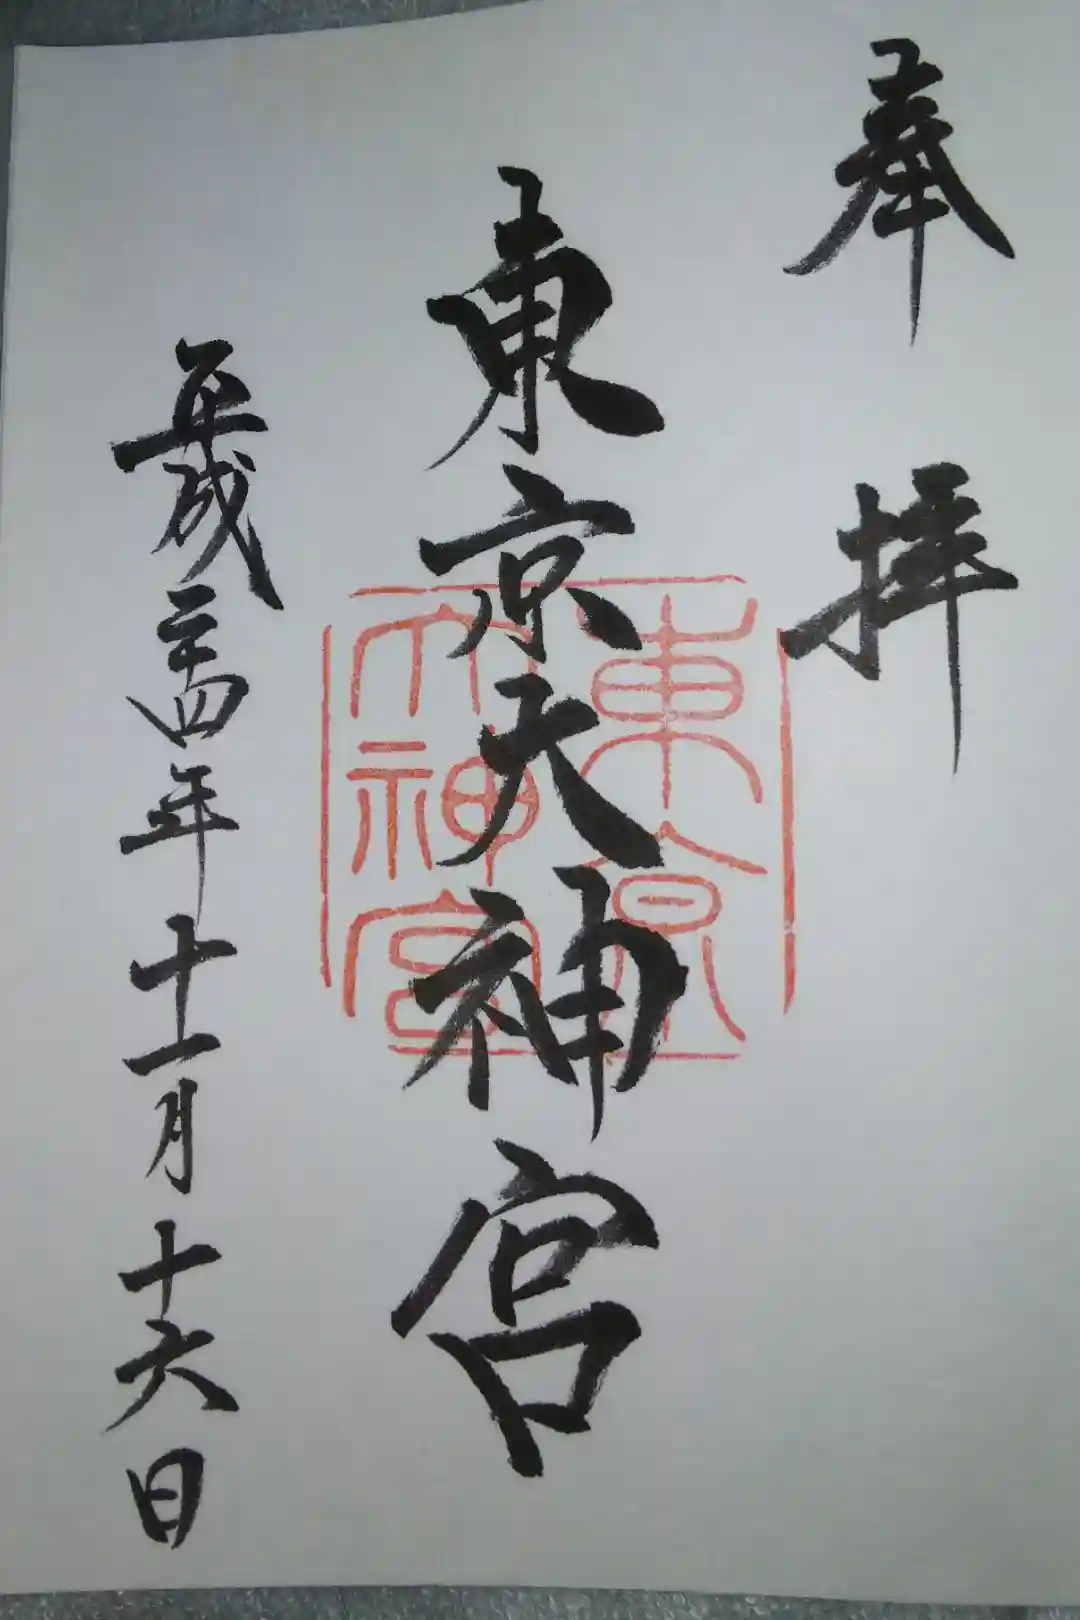 奉拝
東京大神宮
平成二十四年十一月十六日
東京
大神宮